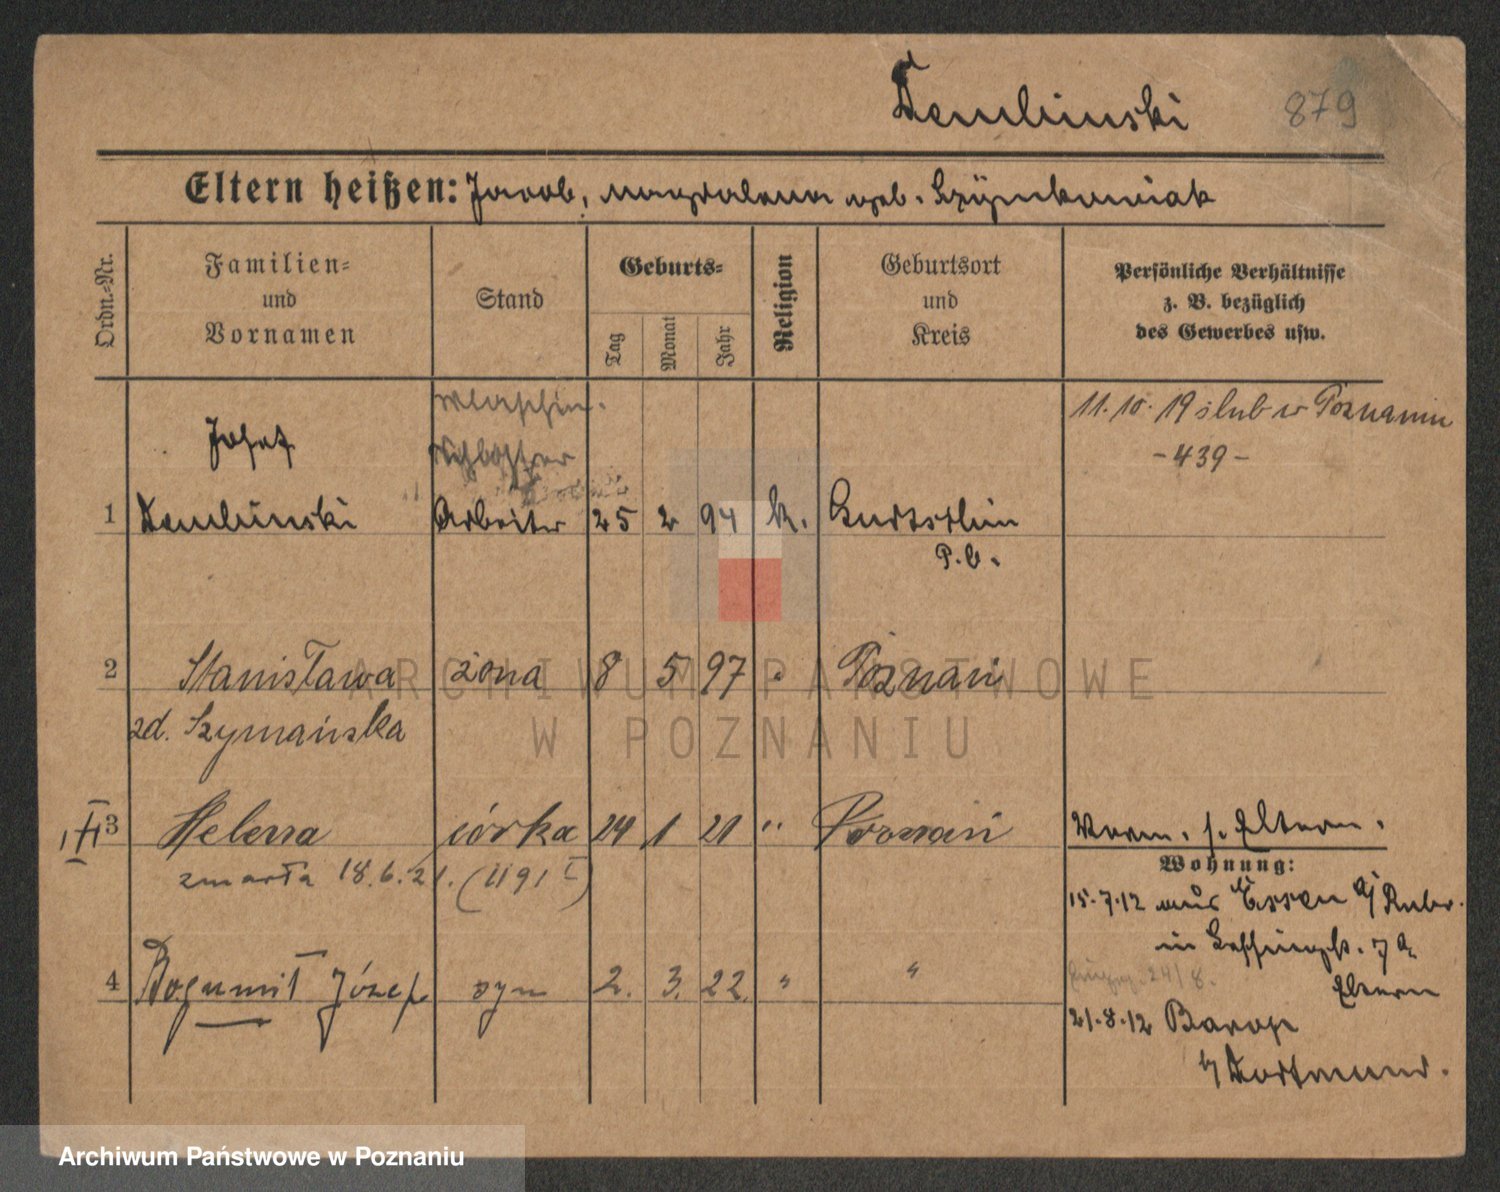 Dembinski 879
Eltern heißen: Jacob, Magdalena geb. Szymkowiak
Ordn.-Nr.
Familien-
und
Vornamen
Stand
Geburts-
Tag
Monat
Jahr
Religion
Geburtsort
und
Kreis
Persönliche Verhältnisse
z. B. bezüglich
des Gewerbes usw.
Maschin.
11. 10. 19 ślub w Poznaniu
-439-
Josef
Schlosser
1 Dembinski Arbeiter 25 2 94 k. Gurtschin
P. O.
2 Stanisława żona 8 5 97 " Poznań
zd. Szymańska
3 Helena córka 24 1 21 " Poznań
zmarła 18.6.21. (1191 I)
Vorm. s. Eltern.
Wohnung:
15.7.12 aus Essen a/ Ruhr.
in
Eltern
4 Bogumił Józef syn 2. 3. 22. " "
24/8.
21.8.12 Barop
b/ Dortmund.
ARCHIWUM PAŃSTWOWE
W POZNANIU
Archiwum Państwowe w Poznaniu